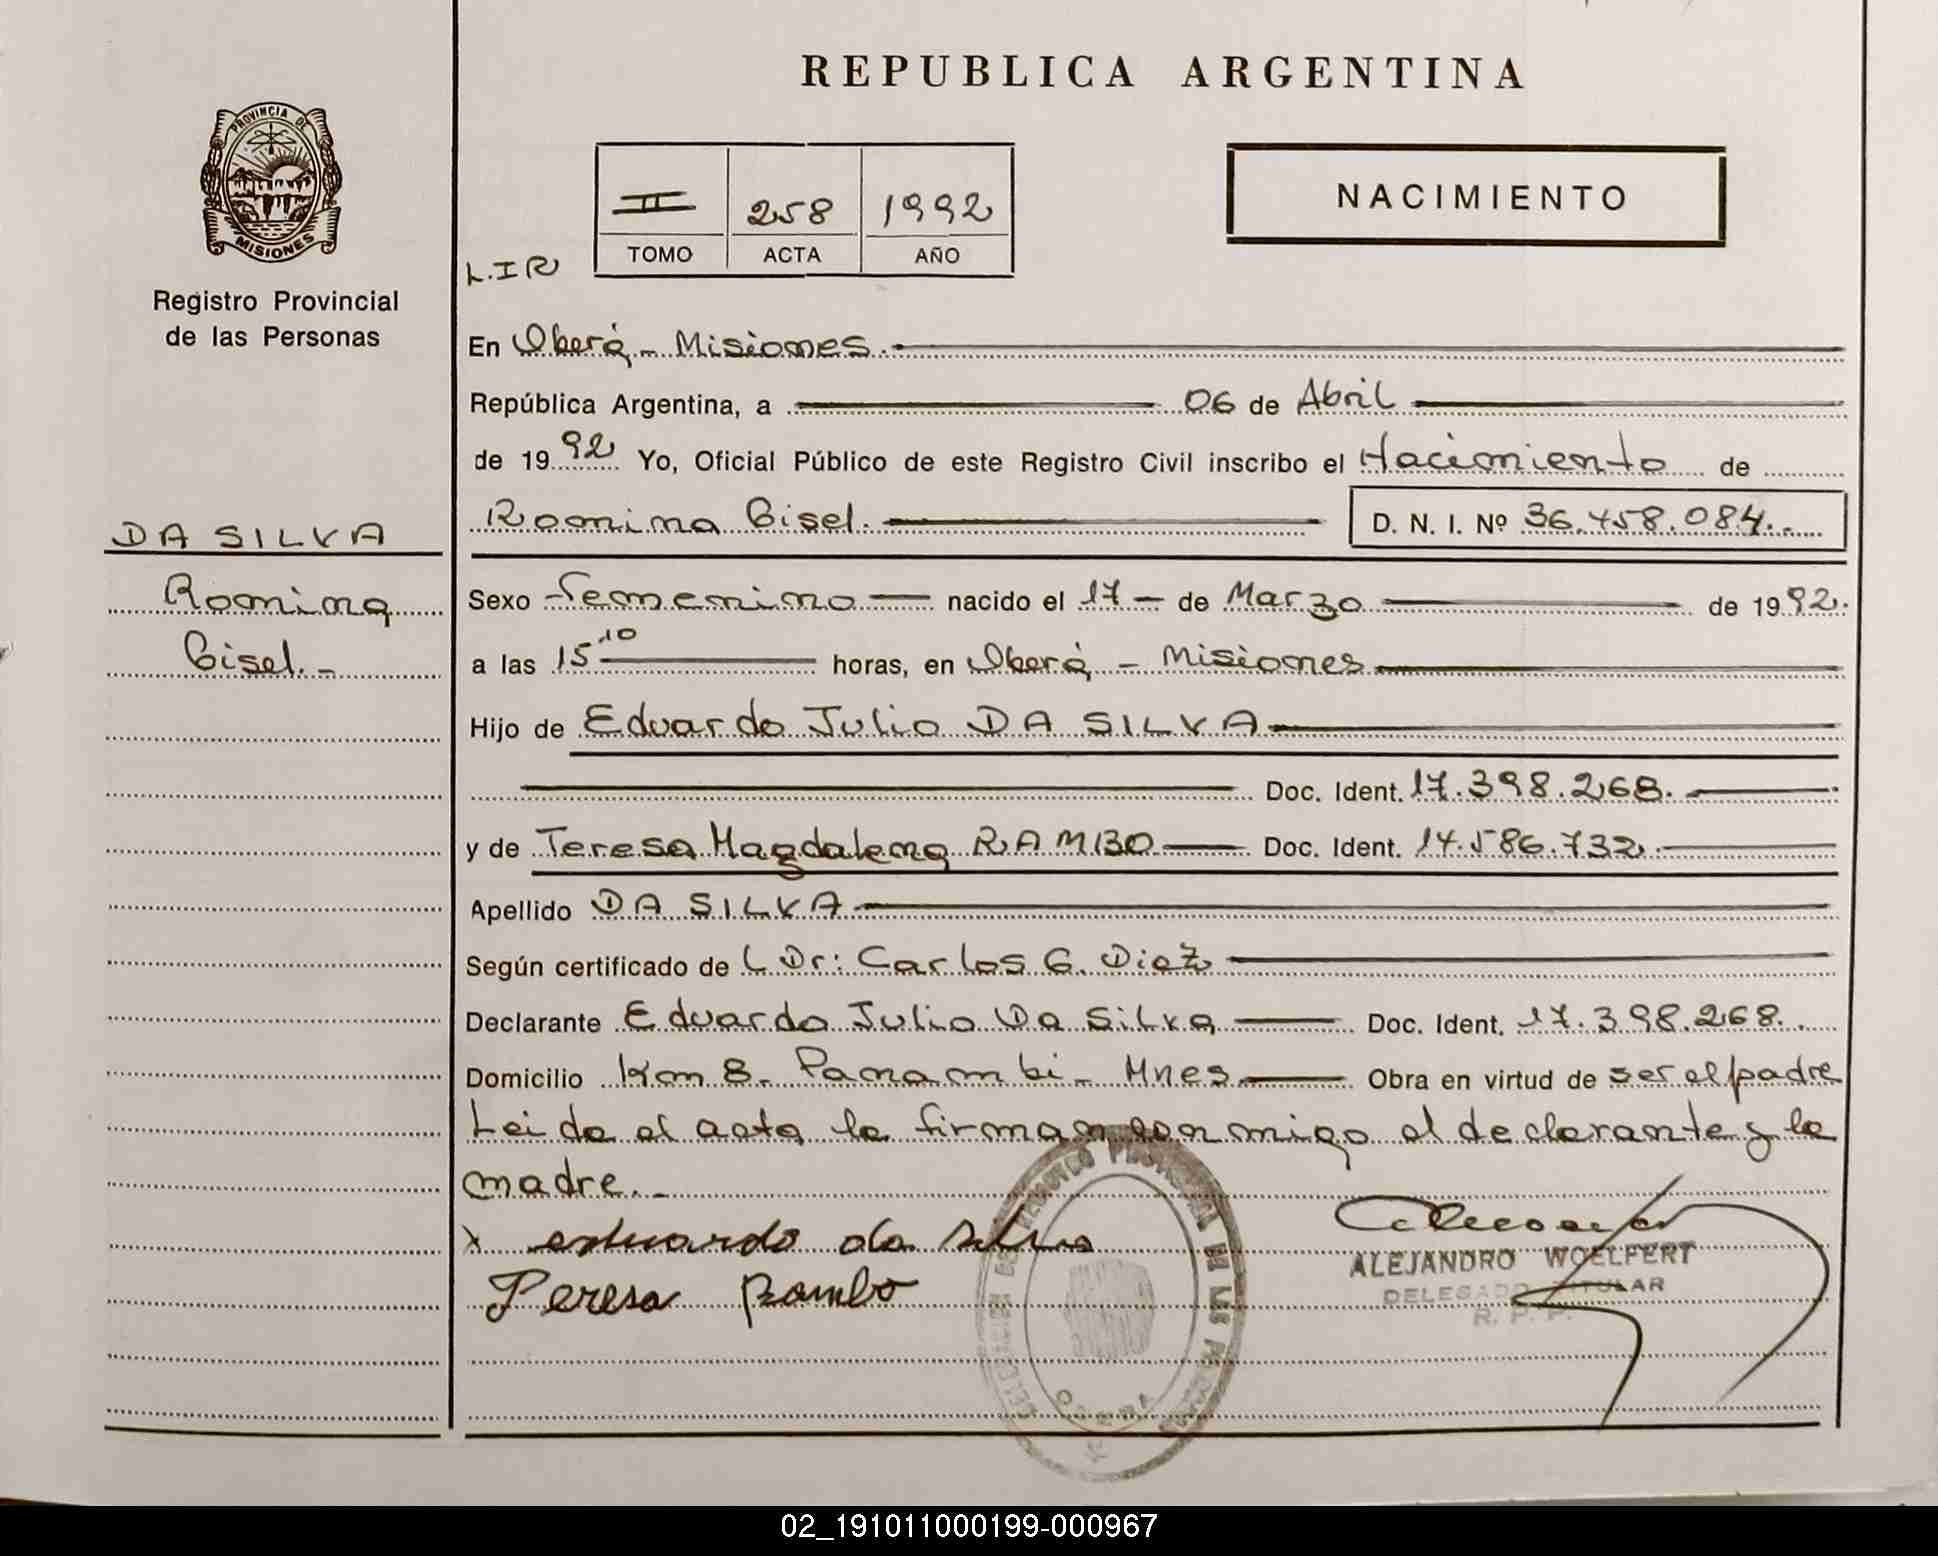 REPUBLICA ARGENTINA
PROVINCIA DE
MISIONES
Registro Provincial
de las Personas
II 258 1992
TOMO ACTA AÑO
NACIMIENTO
L.I R
En Oberá - Misiones.
República Argentina, a 06 de Abril
de 1992 Yo, Oficial Público de este Registro Civil inscribo el Nacimiento de
Romina Gisel. D. N. I. Nº 36.458.084.
DA SILVA
Romina
Gisel. -
Sexo Femenino nacido el 17 - de Marzo de 1992.
a las 15 10 horas, en Oberá - Misiones
Hijo de Eduardo Julio DA SILVA
Doc. Ident. 17.398.268.
y de Teresa Magdalena RAMBO Doc. Ident. 14.586.732.
Apellido DA SILVA
Según certificado de L Dr: Carlos G. Diaz
Declarante Eduardo Julio Da Silva Doc. Ident. 17.398.268.
Domicilio Km 8. Panambi - Mnes Obra en virtud de ser el padre
Leida el acta la firman conmigo el declarante y la
madre. -
x eduardo da silva
Teresa Rambo
REGISTRO PROVINCIAL DE LAS
OBERA
ALEJANDRO WOELFERT
DELEGADO TITULAR
R. P. P.
02_191011000199-000967